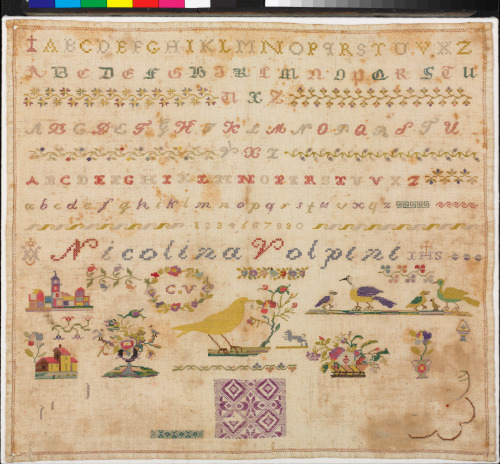 I A B C D E F G H I K L M N O P Q R S T U V X Z
A B C D E F G H I K L M N O P Q R S T U
V X Z
A B C D E F G H I K L M N O P Q R S T U
V X Z
A B C D E F G H I K L M N O P Q R S T U V X Z
a b c d e f g h i k l m n o p q r s t u v x y z
1 2 3 4 5 6 7 8 9 0
Nicolina Volpini IHS
C.V